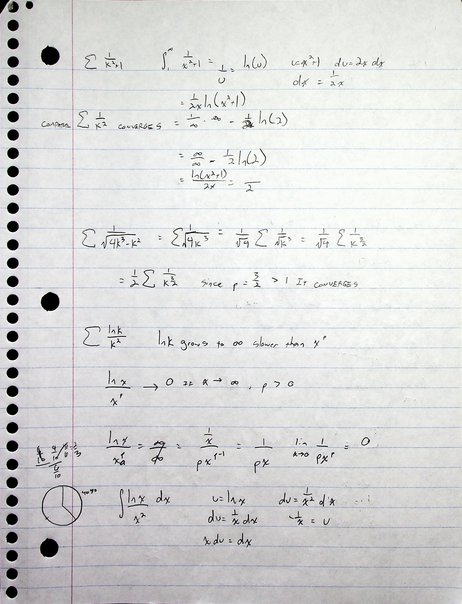 ∑ 1/(k²+1)    ∫₁^∞ 1/(x²+1) = 1/u = ln(u)    u=x²+1  du=2x dx
dx = 1/2x
= 1/2x ln(x²+1)
∑ 1/k² CONVERGES = 1/∞ · ∞ - 1/2 ln(2)
= ∞/∞ - 1/2 ln(2)
= ln(x²+1)/2x = /2
∑ 1/√(4k³-k²) = ∑ 1/√(4k³) = 1/√4 ∑ 1/√k³ = 1/√4 ∑ 1/k^(3/2)
= 1/2 ∑ 1/k^(3/2)  since p = 3/2 > 1 It CONVERGES
∑ ln k/k²  ln k grows to ∞ slower than x^p
ln x/x^p → 0 as x → ∞, p > 0
= ∞/∞ = (1/x)/(px^(p-1)) = 1/px^p  lim 1/px^p = 0
∫ ln x/x² dx    u = ln x    du = 1/x² dx
du = 1/x dx    1/x = u
x du = dx